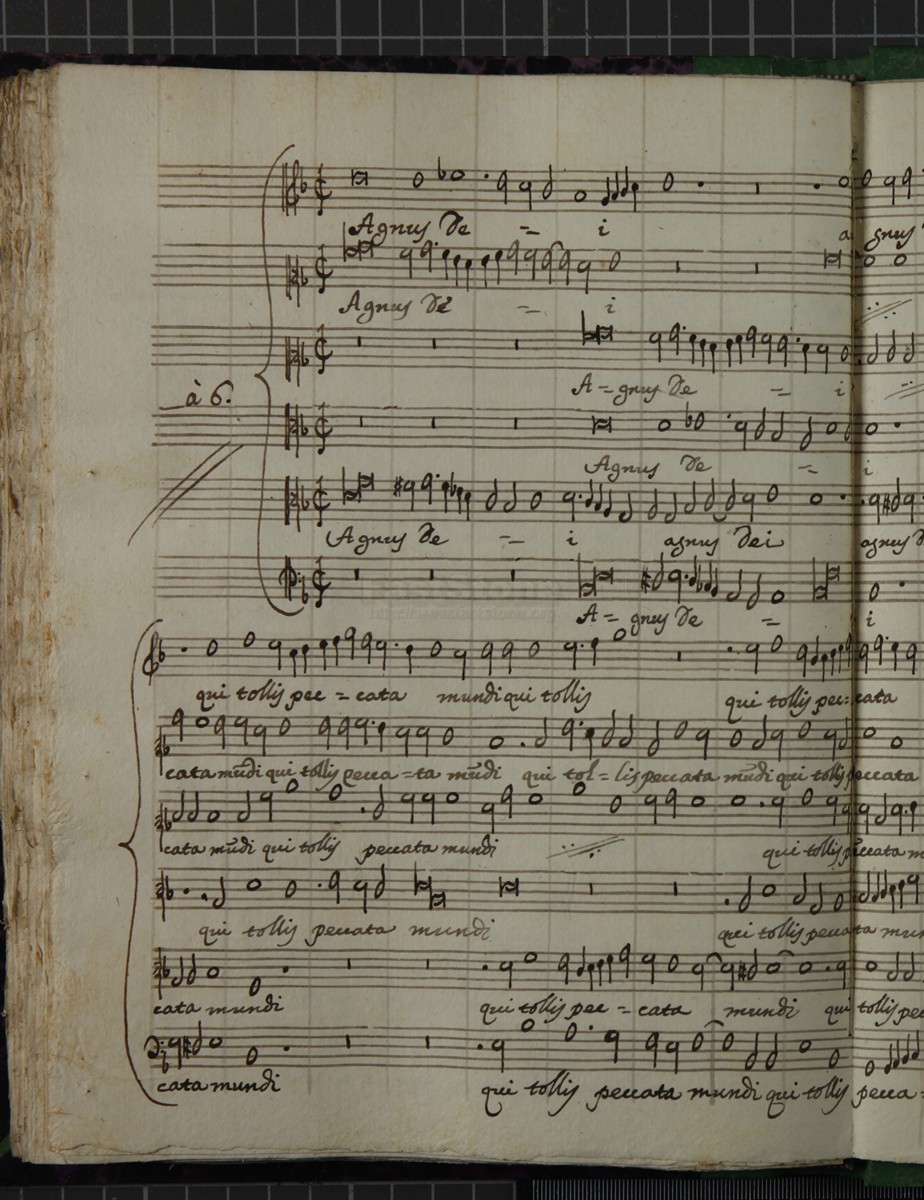 Agnus De = i a gnus
Agnus Dei = i
A = gnus De = i
à 6.
Agnus De = i
Agnus De = i agnus Dei agnus
A = gnus De = i
qui tollis pec = cata mundi qui tollis qui tollis pec = cata
cata mūdi qui tollis pecca = ta mūdi qui tol = lis peccata mūdi qui tollis peccata
cata mūdi qui tollis peccata mundi qui tollis peccata m
qui tollis peccata mundi qui tollis peccata mun
cata mundi qui tollis pec = cata mundi qui tollis pec
cata mundi qui tollis peccata mundi qui tollis pecca =